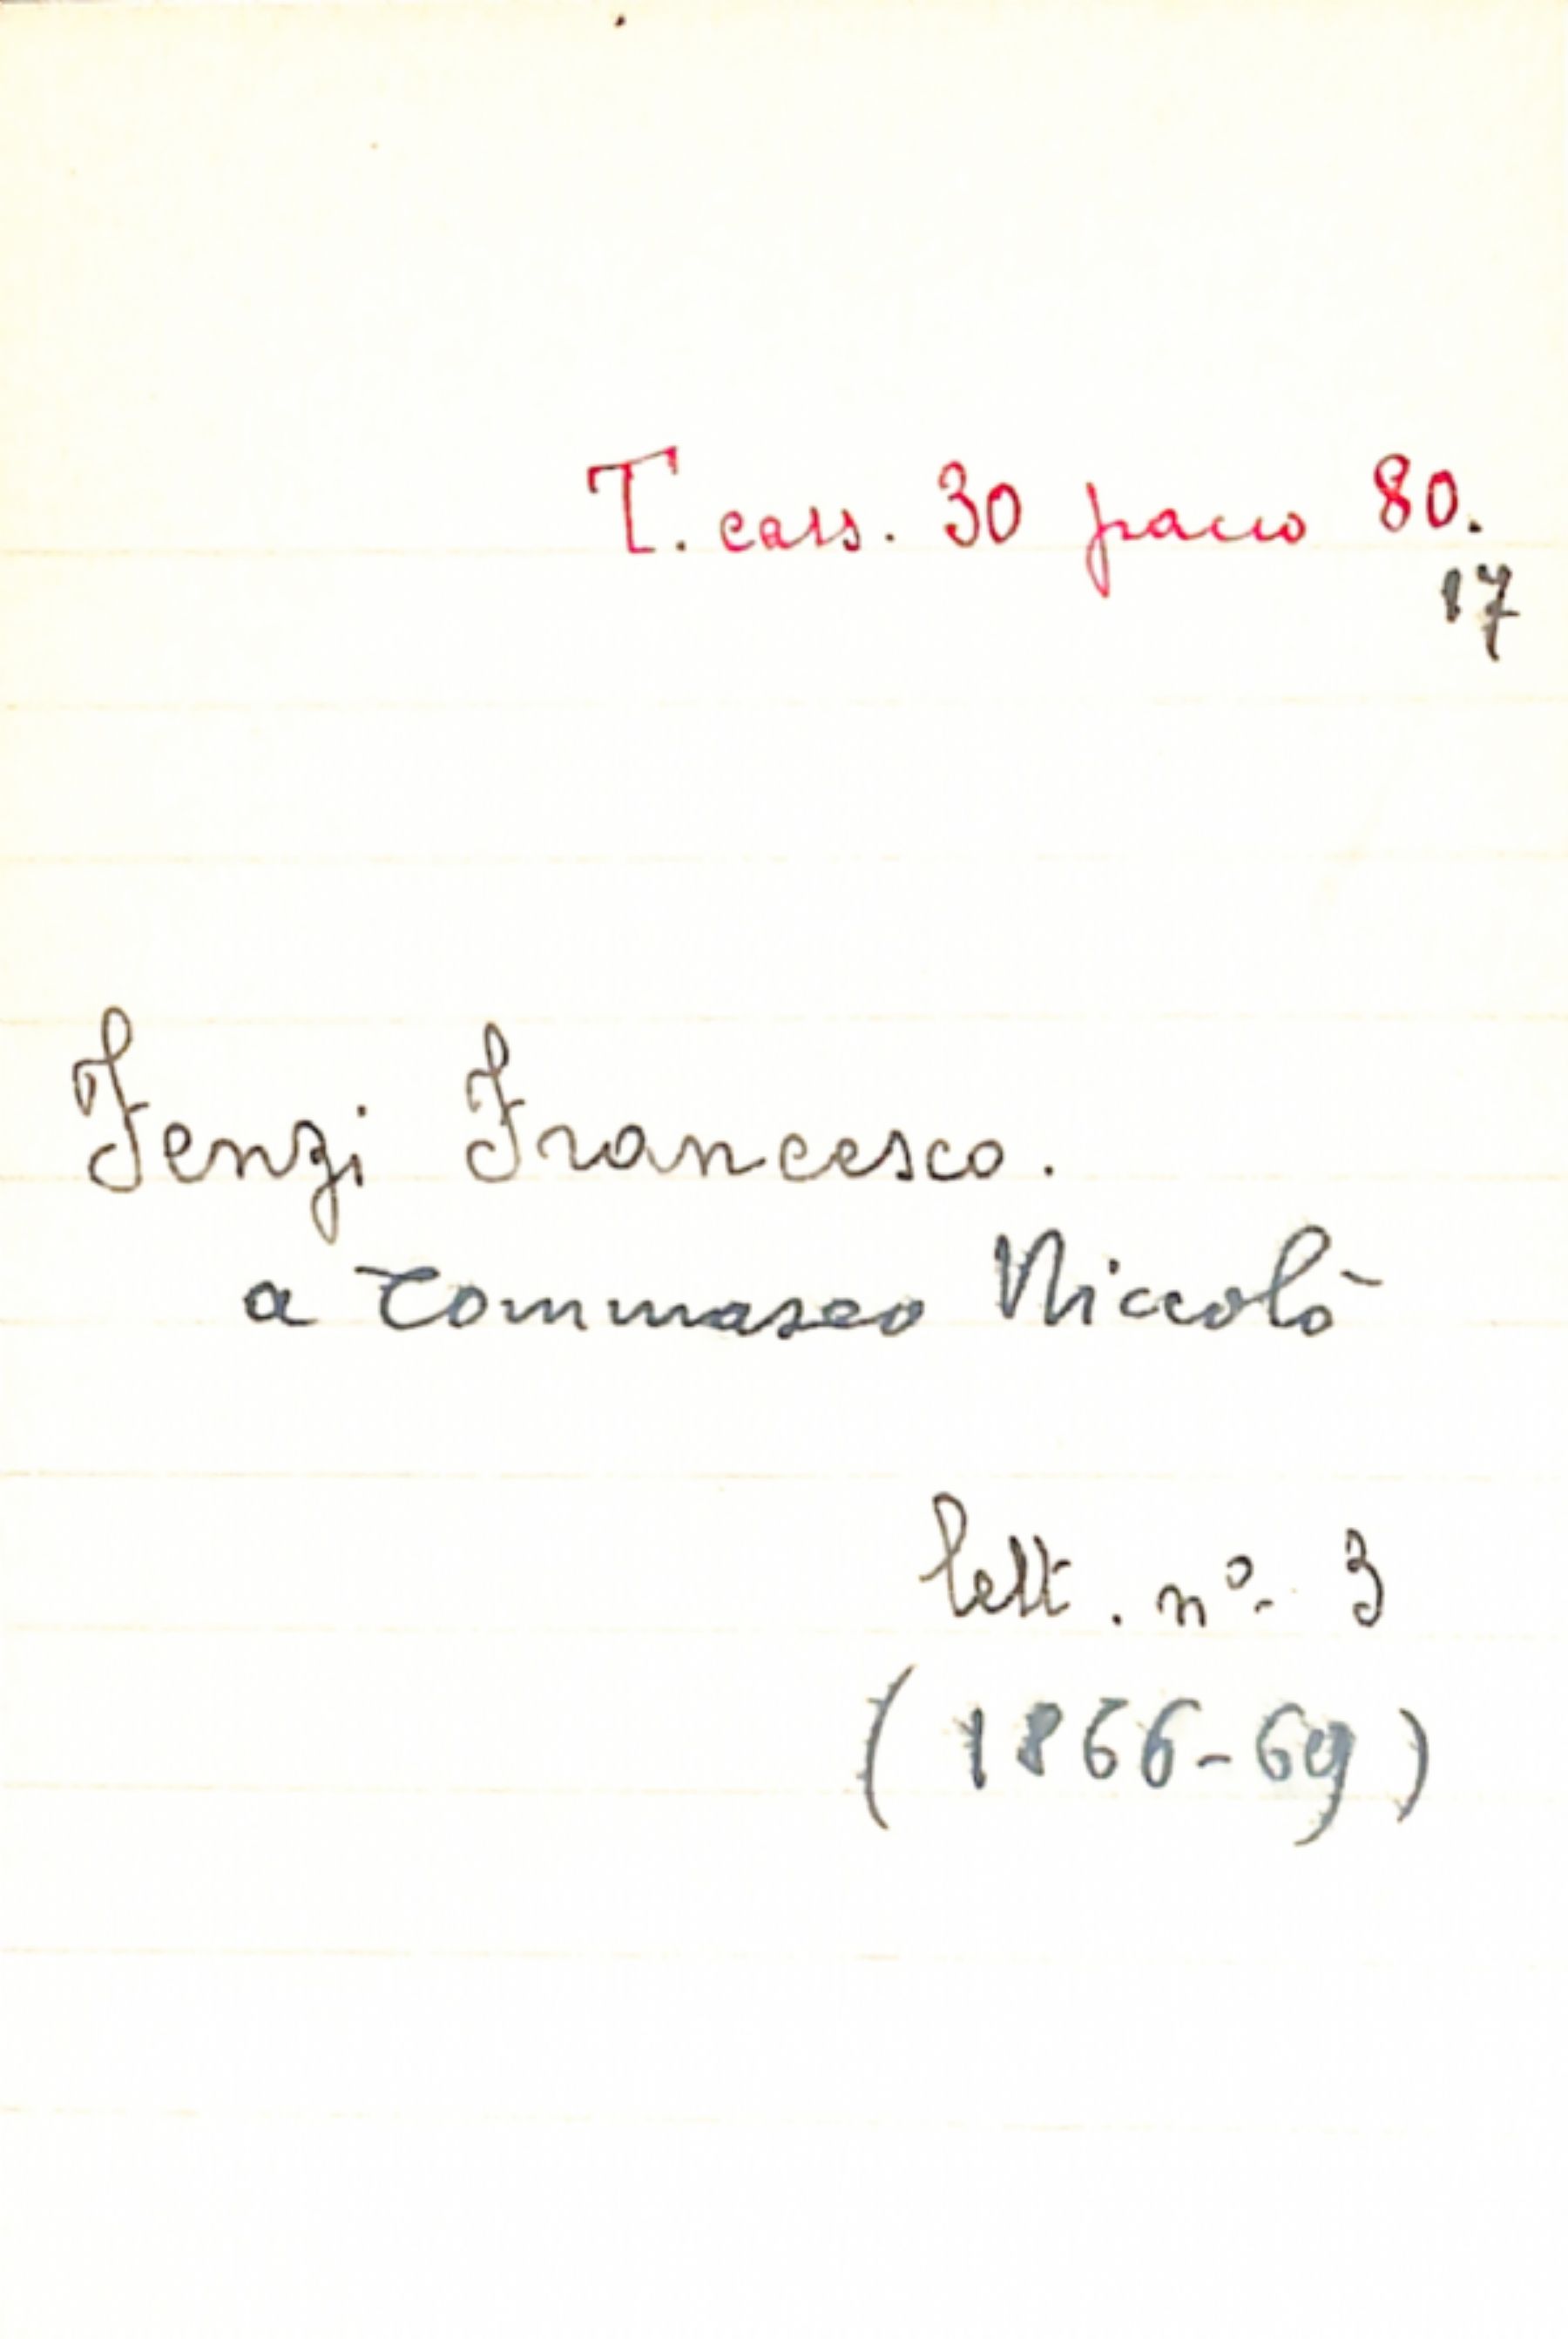 T. cass. 30 pacco 80.
17
Fenzi Francesco.
a Tommaseo Niccolò
lett. nº. 3
(1866-69)